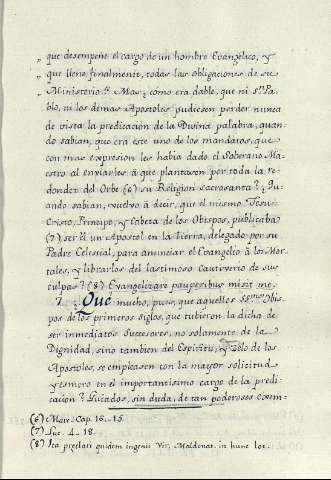 „ que desempeñe el cargo de un hombre Evangélico, y
„ que llene, finalmente, todas las obligaciones de su
„ Ministerio? Mas ¿cómo era dable, que ni Sn. Pa-
blo, ni los demas Apostoles pudiesen perder nunca
de vista la predicación de la Divina palabra, quan-
do sabian, que era este uno de los mandatos, que
con mas expresion les habia dado el Soberano Ma-
estro al enviarles à que plantasen por toda la re-
dondez del Orbe (6) su Religion sacrosanta? ¿Qu-
ando sabian, vuelvo à decir, que el mismo Jesu-
Cristo, Principe, y Cabeza de los Obispos, publicaba
(7) ser él un Apostol en la tierra, delegado por su
Padre Celestial, para anunciar el Evangelio à los Mor-
tales, y librarlos del lastimoso Cautiverio de sus
culpas? (8) Evangelizare pauperibus misit me.
7. ¿Qué mucho, pues, que aquellos Ssmos. Obis-
pos de los primeros siglos, que tubieron la dicha de
ser inmediatos Sucesores, no solamente de la
Dignidad, sino tambien del Espiritu, y zelo de los
Apostoles, se empleasen con la mayor solicitud
y esmero en el importantisimo cargo de la predi-
cación? Guiados, sin duda, de tan poderosos exem-
(6) Marc. Cap. 16. - 15.
(7) Luc. 4 - 18.
(8) Ita preclari quidem ingenii Vir, Maldonat. in hunc loc.